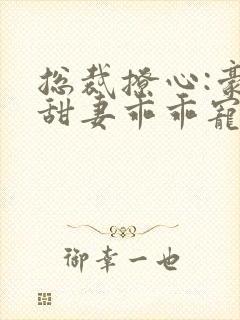 总裁撩心:豪
甜妻乖乖宠
御幸一也